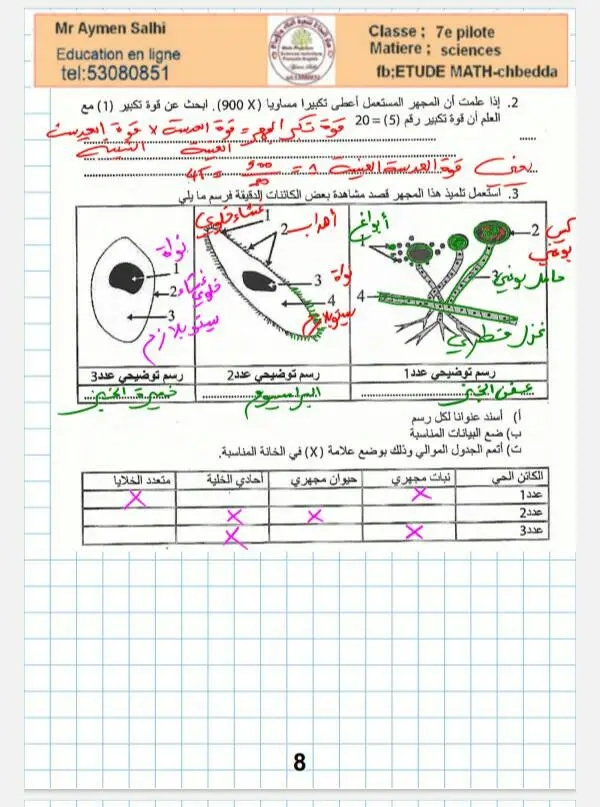 Mr Aymen Salhi
Education en ligne
tel:53080851
Classe ; 7e pilote
Matiere ; sciences
fb;ETUDE MATH-chbedda
2. إذا علمت أن المجهر المستعمل أعطى تكبيرا مساويا (900 X). ابحث عن قوة تكبير (1) مع
العلم أن قوة تكبير رقم (5) = 20
قوة تكبير المجهر = قوة العدسة × قوة العدسة
العينية الشيئية
يعني قوة العدسة العينية 1 = 900/20 = 45
3. استعمل تلميذ هذا المجهر قصد مشاهدة بعض الكائنات الدقيقة فرسم ما يلي
نواة
1
2
غشاء خلوي
3
سيتوبلازم
غشاء خلوي
1
2
أهداب
3
نواة
4
سيتوبلازم
أبواغ
1
2
كيس بوغي
3
حامل بوغي
4
غزل فطري
رسم توضيحي عدد1
رسم توضيحي عدد2
رسم توضيحي عدد3
عفن الخبز
البراميسيوم
خميرة الخبز
أ) أسند عنوانا لكل رسم
ب) ضع البيانات المناسبة
ت) أتمم الجدول الموالي وذلك بوضع علامة (X) في الخانة المناسبة.
الكائن الحي نبات مجهري حيوان مجهري أحادي الخلية متعدد الخلايا
عدد1 X X
عدد2 X X
عدد3 X X
8